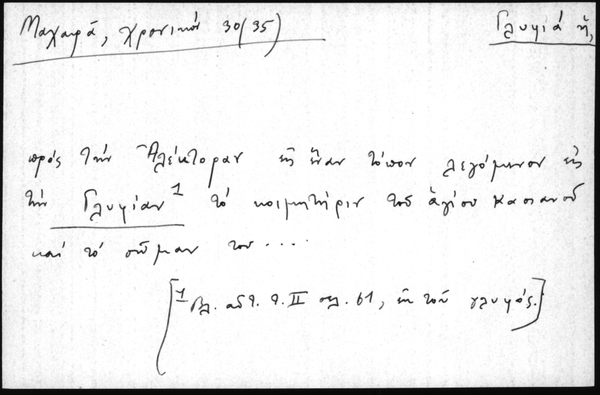 Μαχαιρά, χρονικόν 30 (35)
Γλυφιά ἡ,
πρός τήν Ἀλέκτοραν εἰς ἕναν τόπον λεγόμενον εἰς
τήν Γλυφίαν¹ τό κοιμητήριν τοῦ ἁγίου Κασιανοῦ
καί τό σῶμαν του ....
[¹ Βλ. τ. II σελ. 61, ἐκ τοῦ γλυφός.]